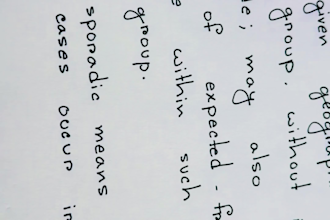 given
group. without
may also
of expected -
within such
group.
sporadic means
cases occur in